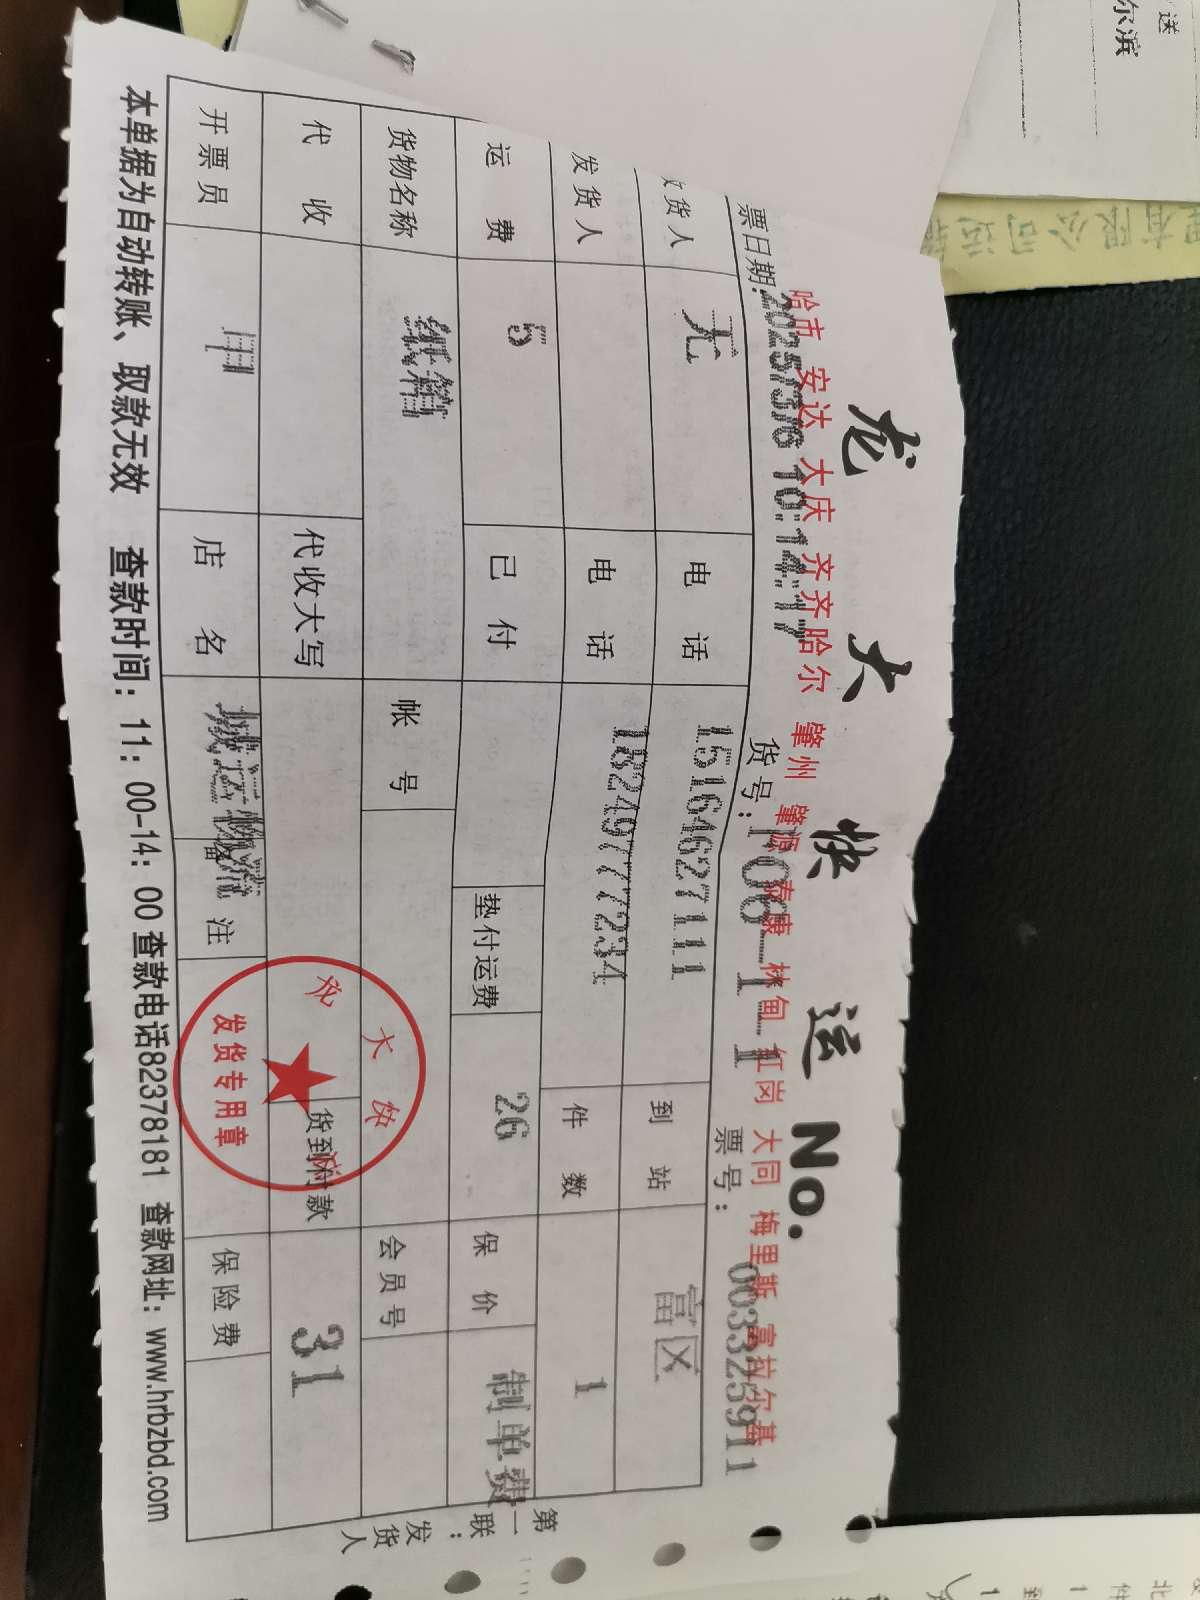 龙大快运 No.
哈市 安达 大庆 齐齐哈尔 肇州 肇源 泰康 林甸 红岗 大同 梅里斯 富拉尔基
票日期:2025/3/6 10:14:17 货号: F06-1-1 票号: 003325911
收货人 无 电话 15164627111 到站 富区
发货人 电话 18249777234 件数 1
运费 5 已付 垫付运费 26 保价 制单费
货物名称 纸箱 帐号 会员号
代收 代收大写 货到付款 31
开票员 店名 备注 保险费
龙大快运
发货专用章
本单据为自动转账、取款无效 查款时间:11:00-14:00 查款电话82378181 查款网址:www.hrbzbd.com
第一联:发货人
送
尔滨
限公司